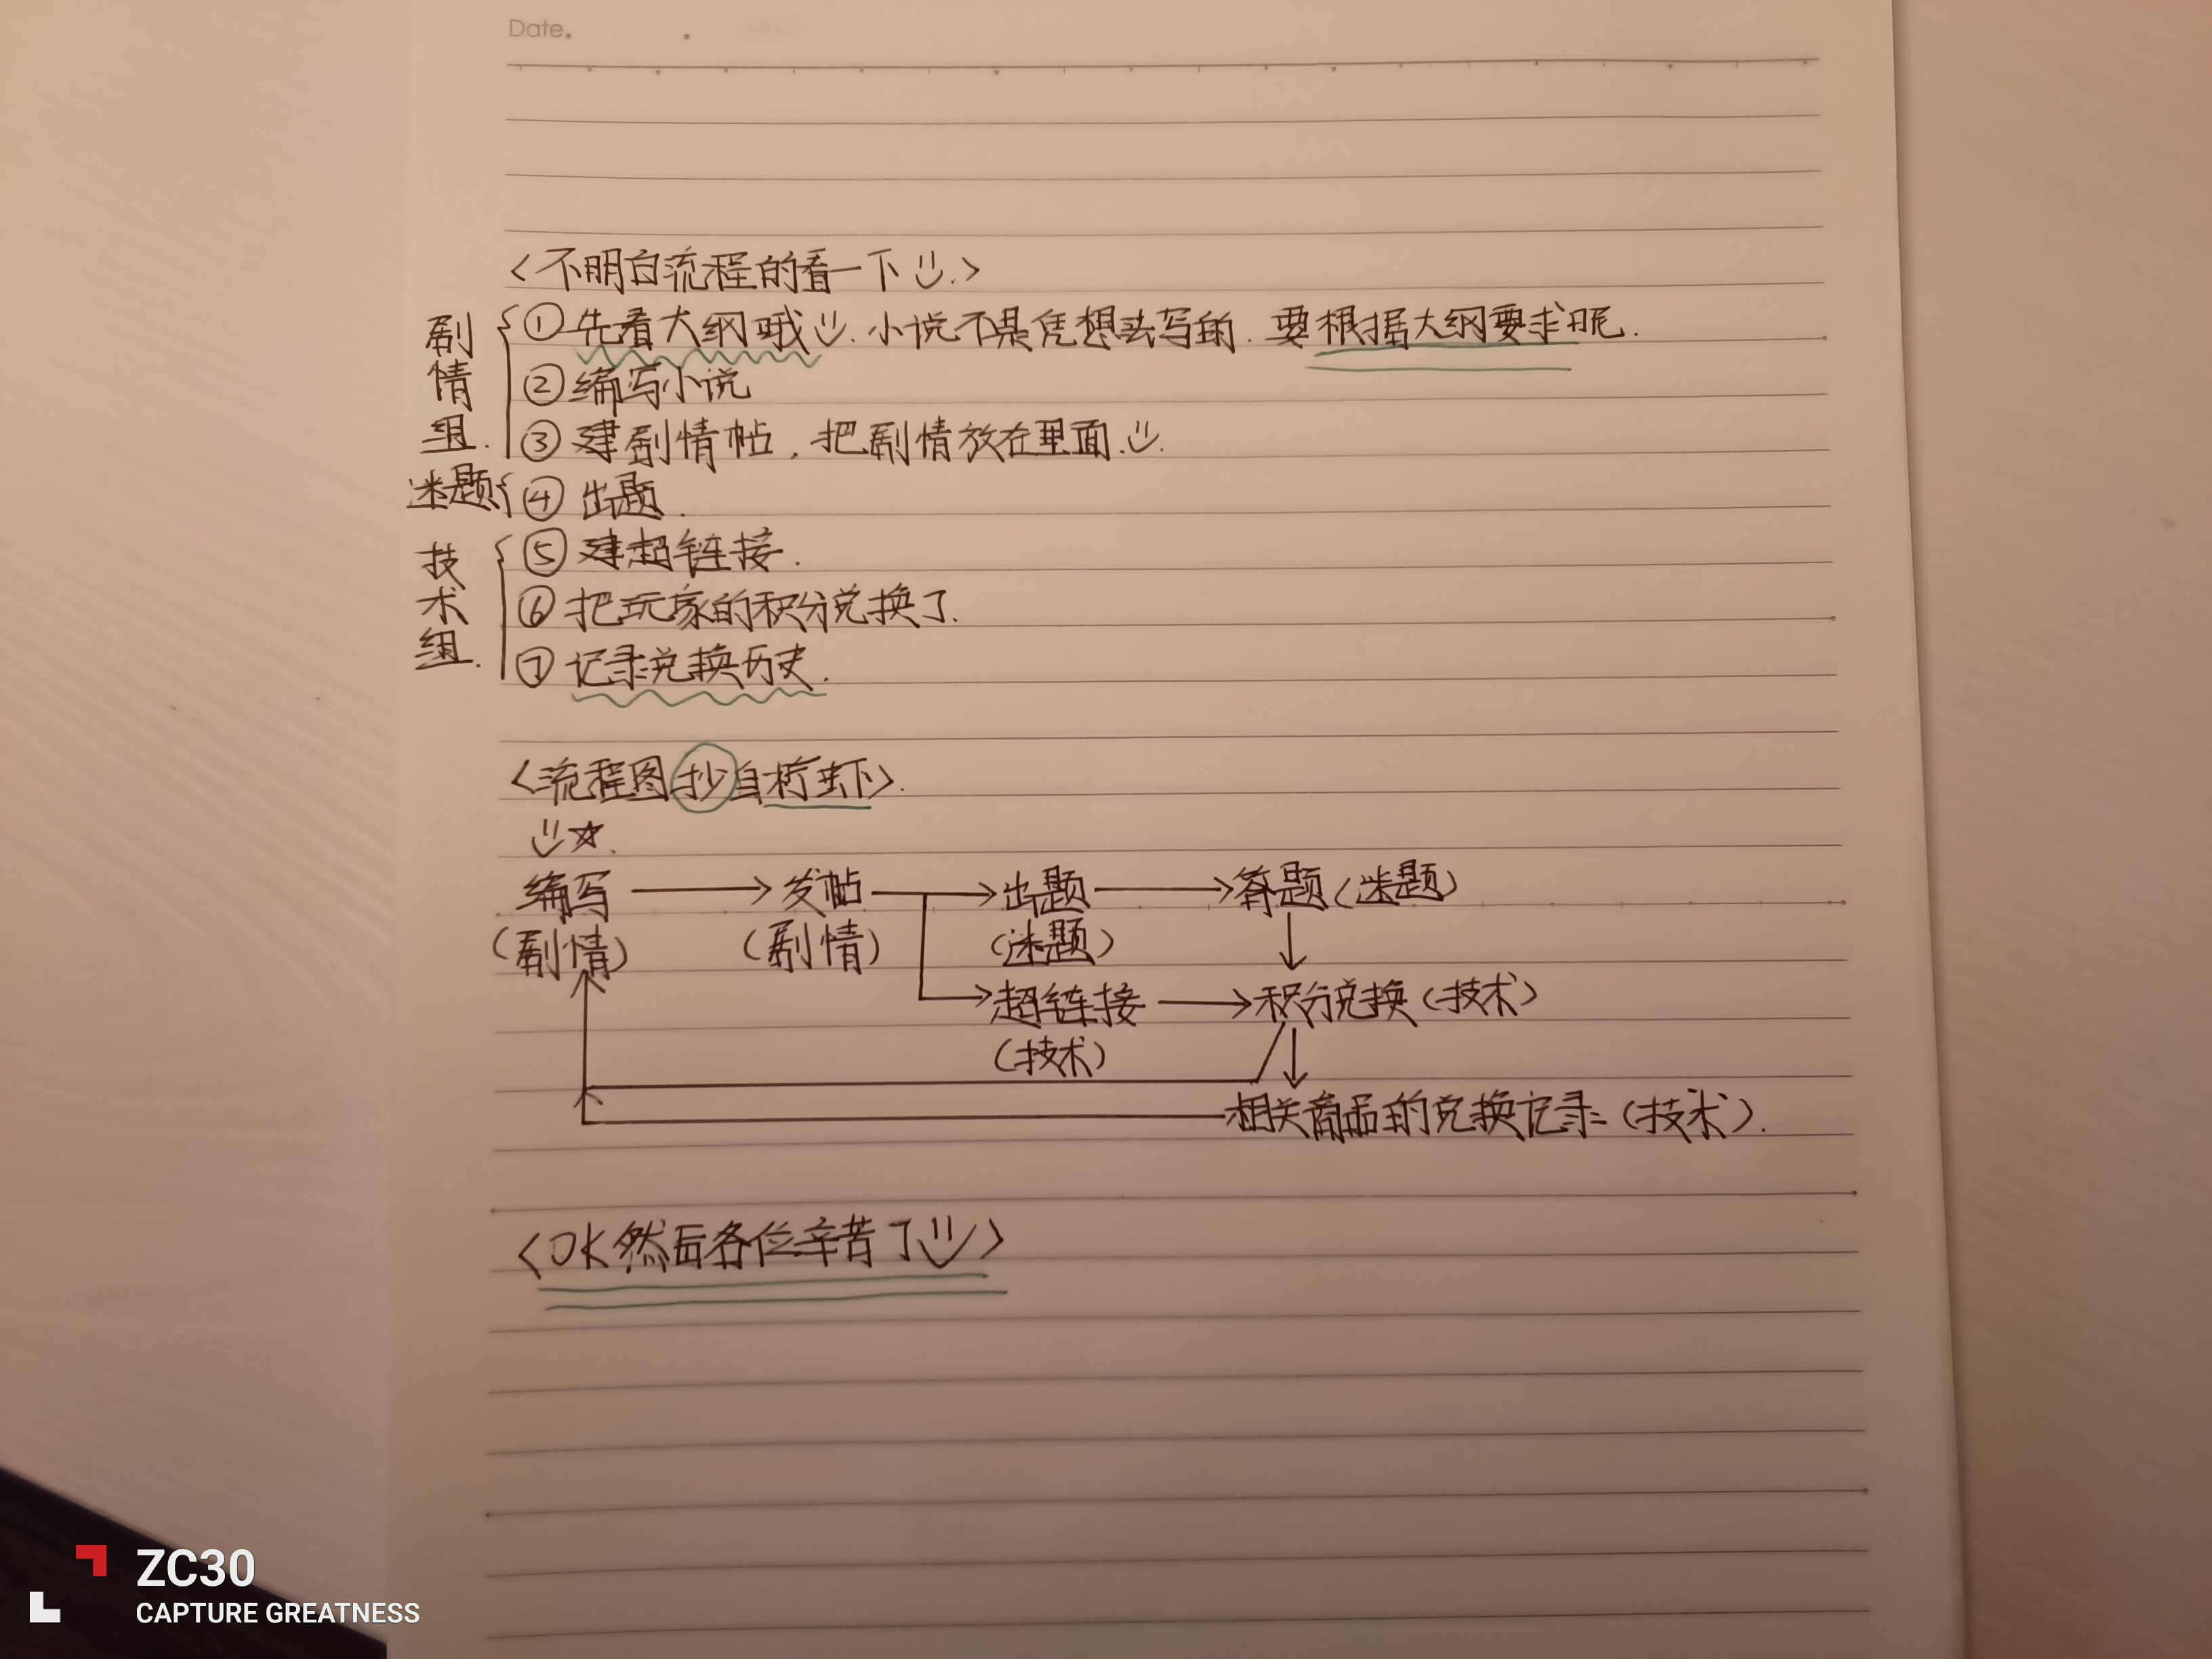 Date.
<不明白流程的看一下>
剧情组. ①先看大纲哦. 小说不是凭想去写的. 要根据大纲要求呢.
②编写小说
③建剧情帖, 把剧情放在里面.
迷题 ④出题.
技术组. ⑤建超链接.
⑥把玩家的积分兑换了.
⑦记录兑换历史.
<流程图抄自桁虾>.
☆.
编写 → 发帖 → 出题 → 答题(迷题)
(剧情) (剧情) (迷题)
超链接 → 积分兑换(技术)
(技术)
相关商品的兑换记录(技术).
<OK然后各位辛苦了>
ZC30
CAPTURE GREATNESS